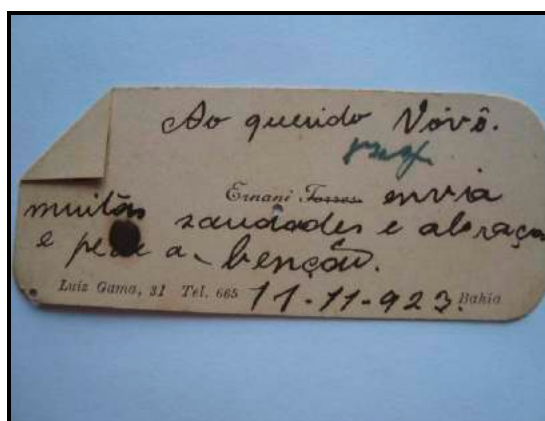 Ao querido Vôvô.
Ernani Torres envia
muitas saudades e abraços
e pede a benção.
Luiz Gama, 31 Tel. 665 11-11-923. Bahia